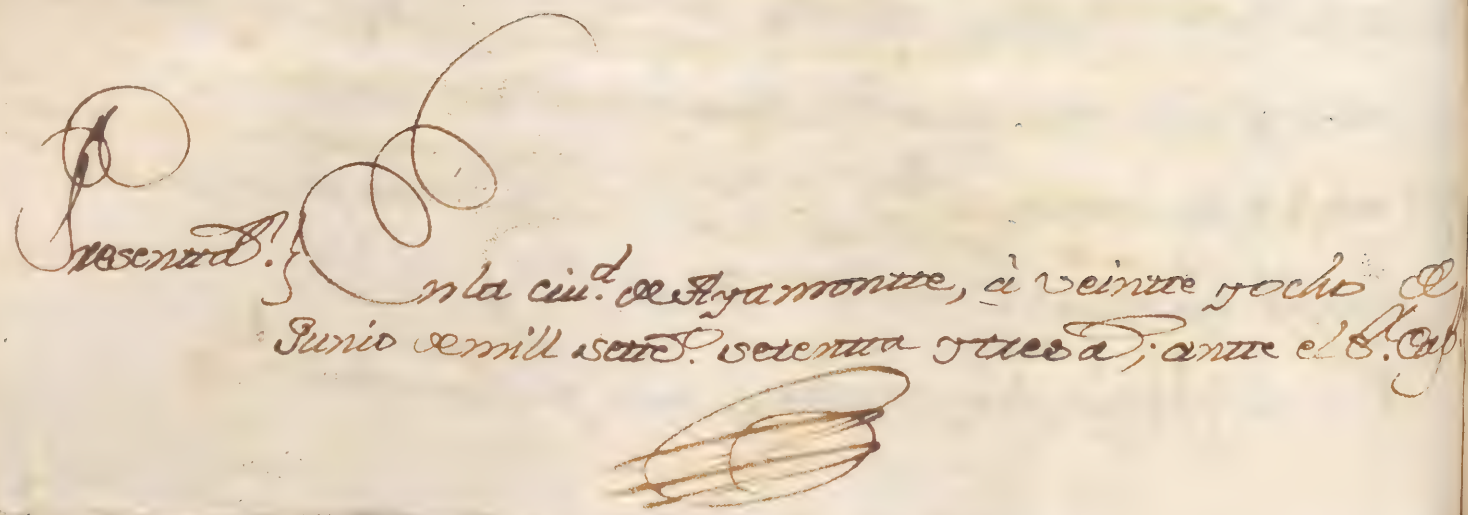 Presentad.ⁿ} En la ciu.ᵈ de Ayamontte, à veintte y ocho de
Junio de mill sette.ˢ setentta y tres a.ˢ; antte el S.ʳ Cap.ⁿ